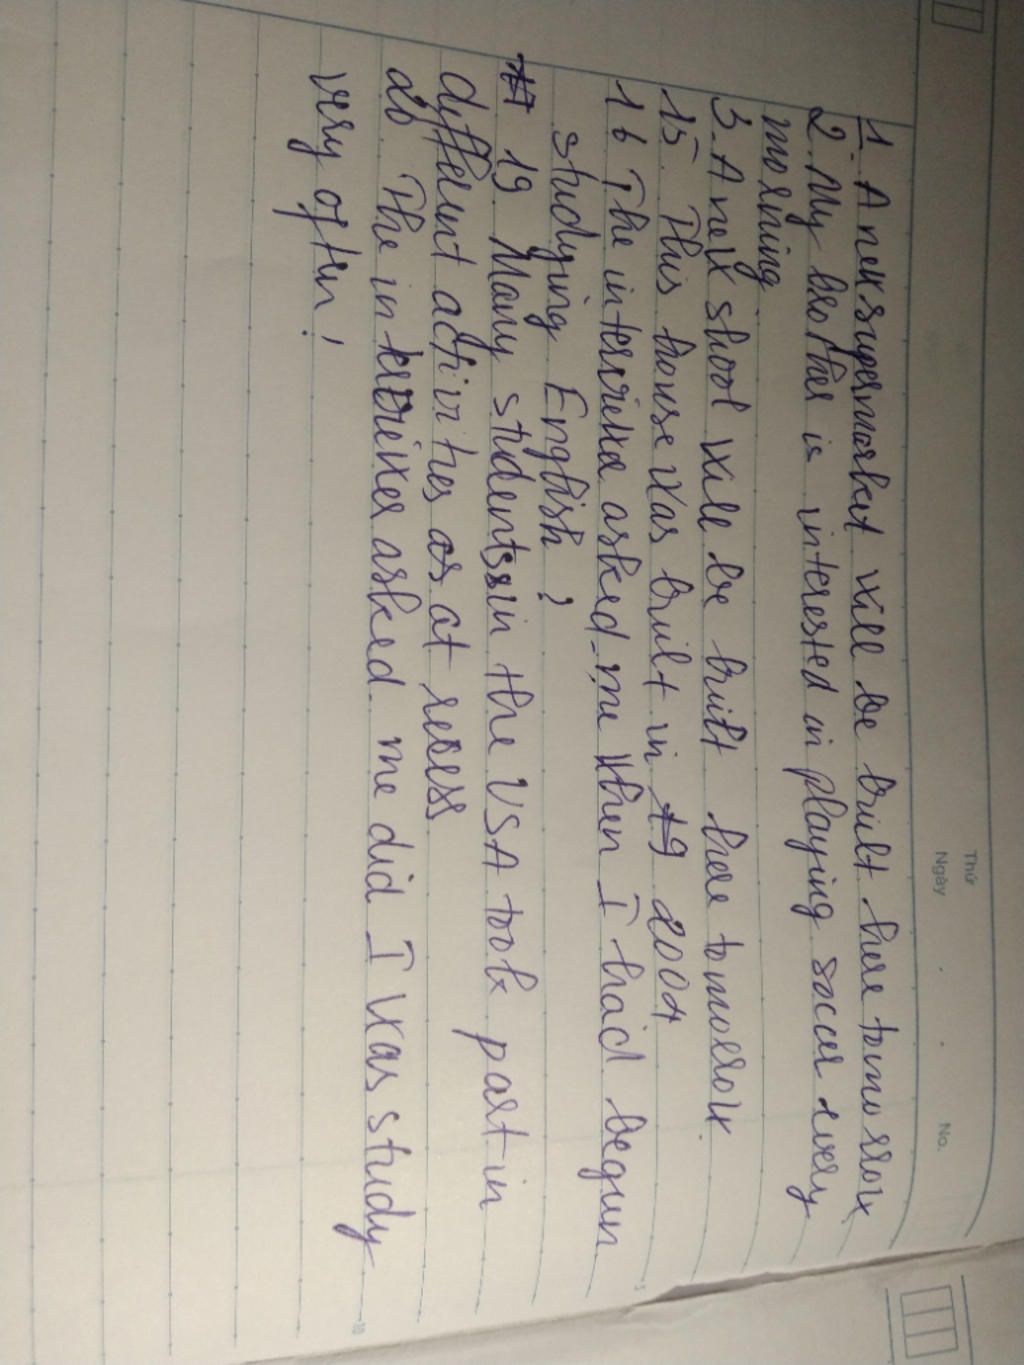 Thứ
Ngày
No.
1. A new supermarket will be built here tomorrow
2. My brother is interested in playing soccer every
morning
3. A new shool will be built here tomorrow.
15. This house was built in 19 2004
16 The interviewe asked me when I had begun
studying English?
17 19 Many students in the USA took part in
different activities as at recess
20 The interviewer asked me did I was study
very often!
5
10